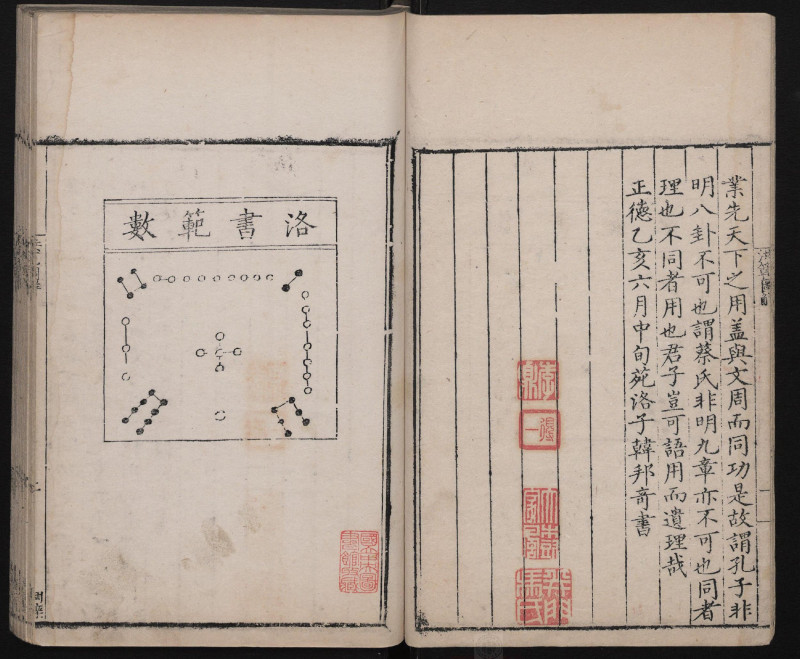 業先天下之用盖與文周而同功是故謂孔子非
明八卦不可也謂蔡氏非明九章亦不可也同者
理也不同者用也君子豈可語用而遺理哉
正德乙亥六月中旬苑洛子韓邦奇書
洛書範數